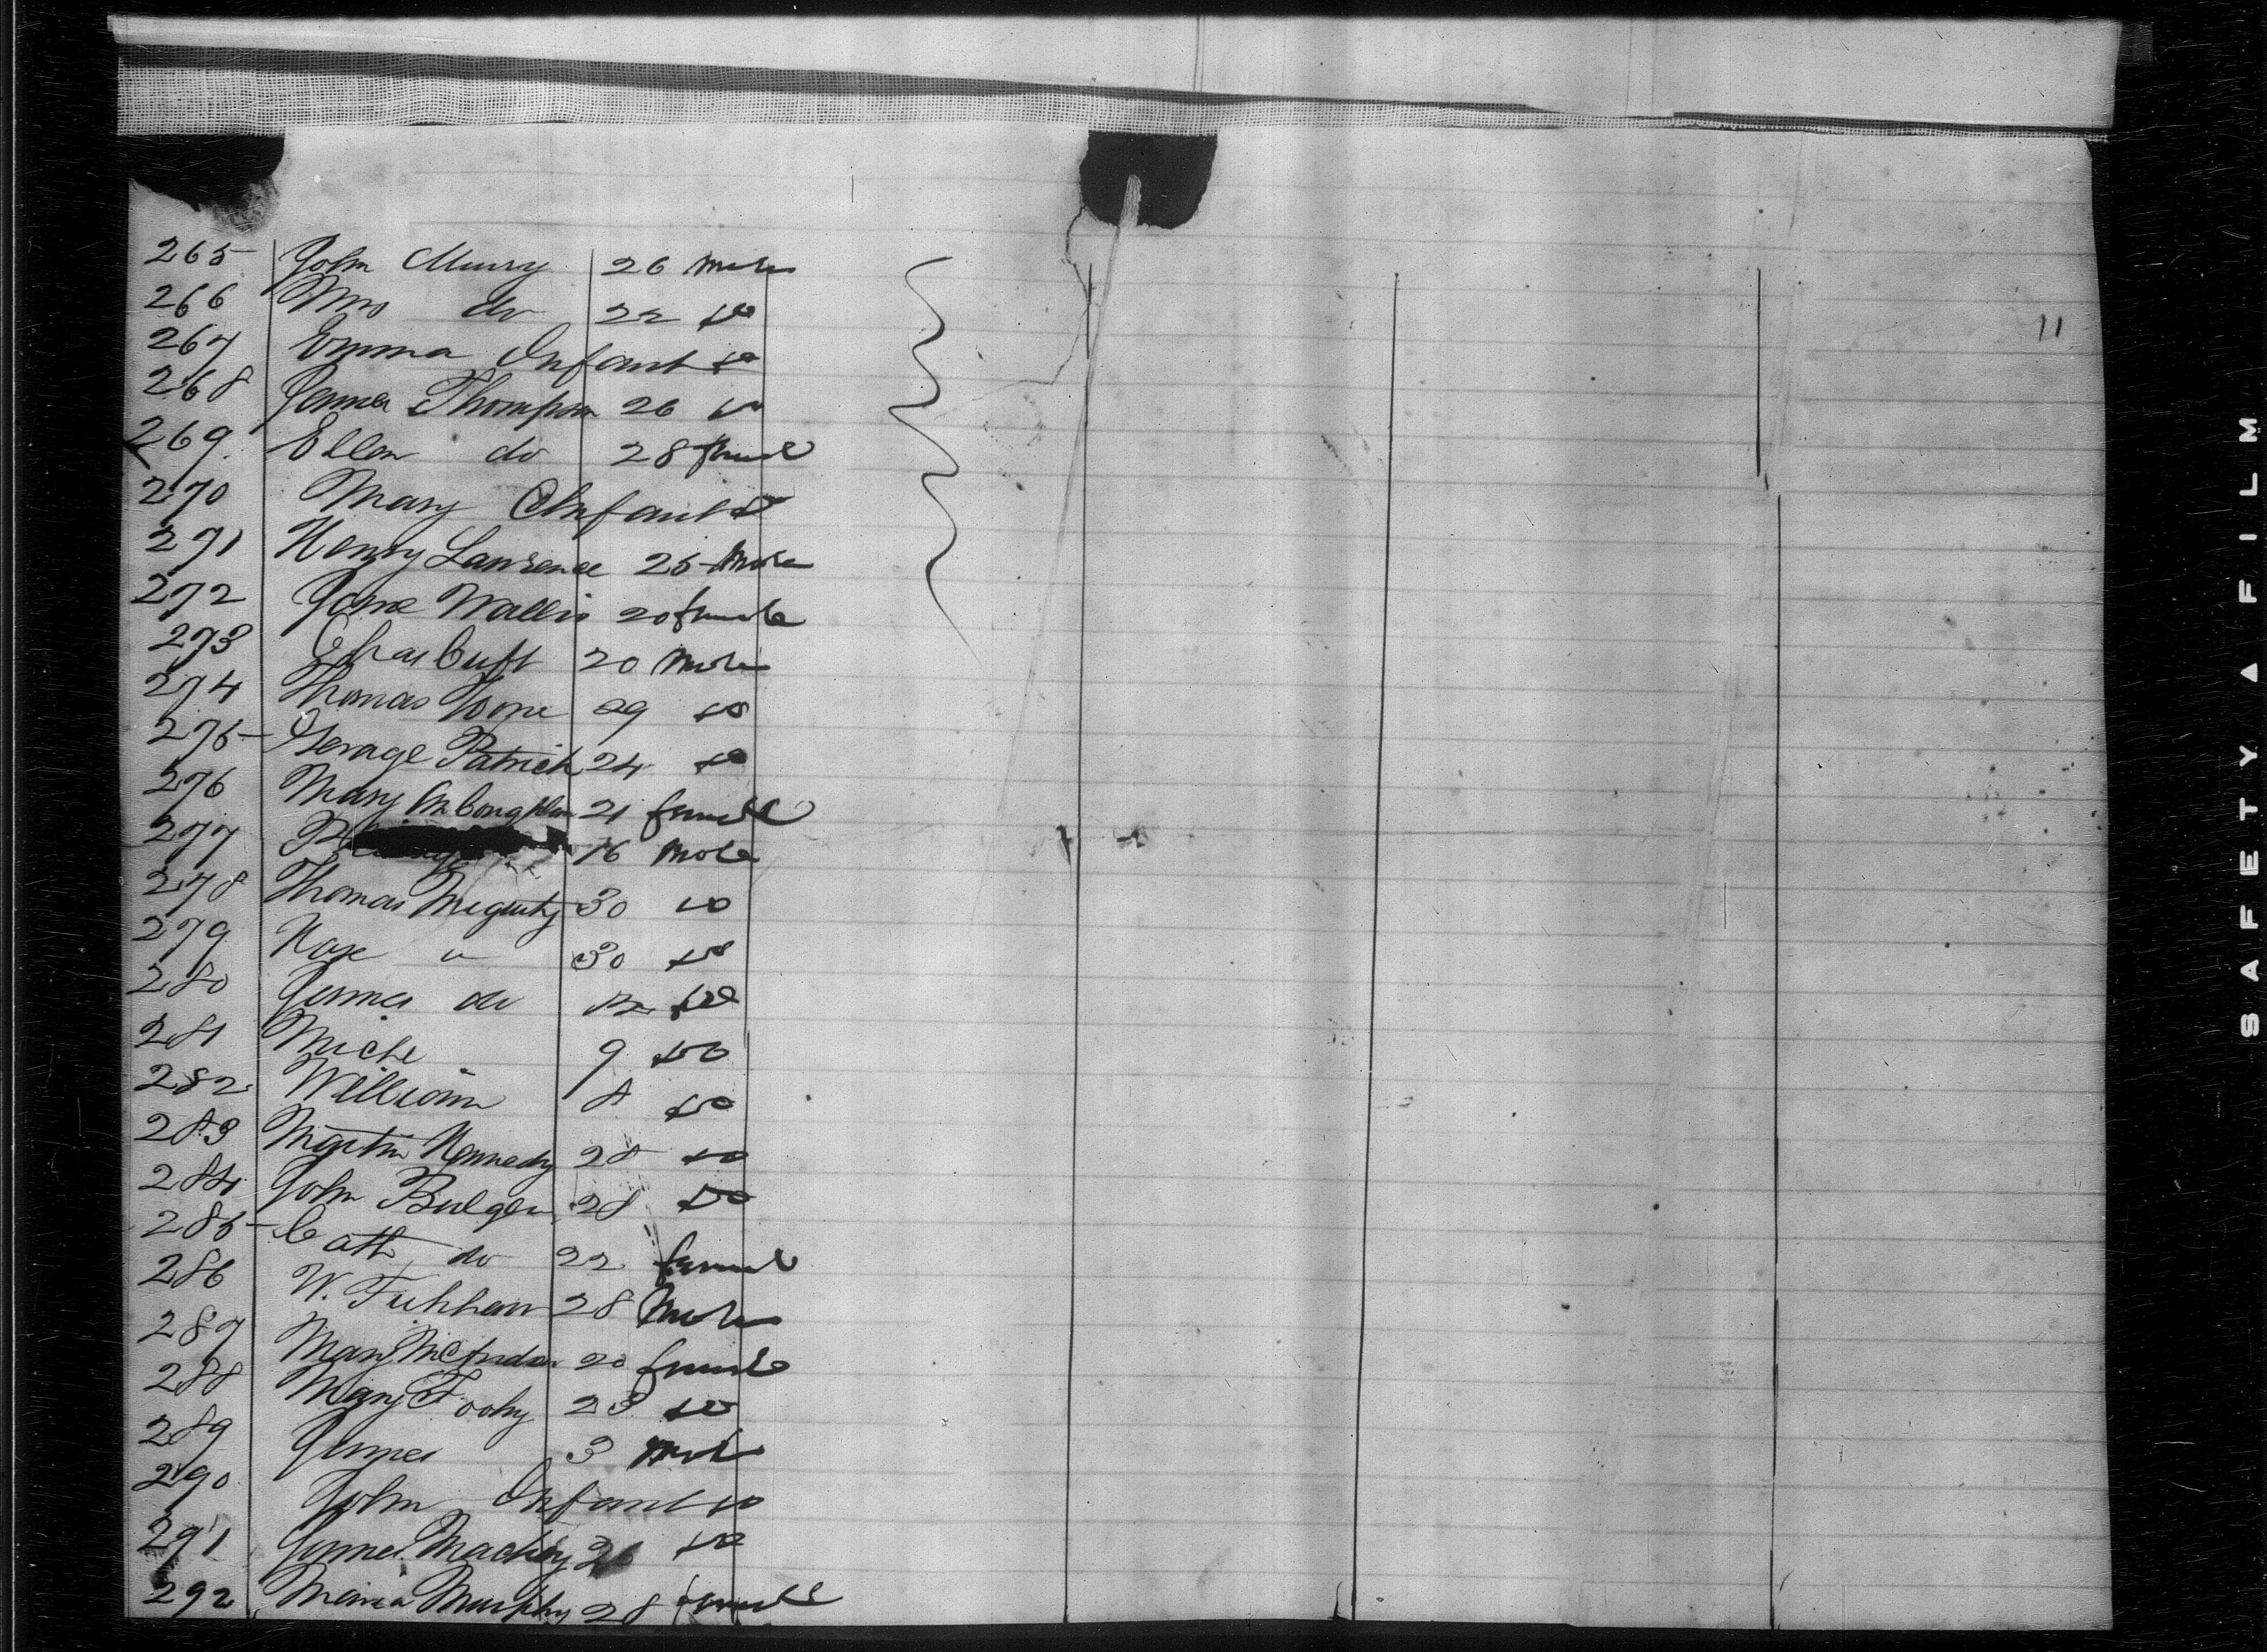 11
265 John Murry 26 male
266 Mrs do 22 do
267 Emma Infant do
268 James Thompson 26 do
269 Ellen do 28 female
270 Mary Infant do
271 Henry Lawrence 25 Male
272 Jane Wallis 20 female
273 Chas Cuft 20 Male
274 Thomas 29 do
275 George Patrick 24 do
276 Mary 21 female
277 16 Male
278 Thomas Meguty 30 do
279 Rose " 30 do
280 James do 12 do
281 Mich 9 do
282 William 8 do
283 Martin Kennedy 28 do
284 John Bulger 28 do
285 Cath do 22 female
286 W. 28 Male
287 Mary 20 female
288 Mary Toohy 23 do
289 James 3 Male
290 John Infant do
291 James Mackey 26 do
292 Maria Murphy 28 female
SAFETY ▲ FILM